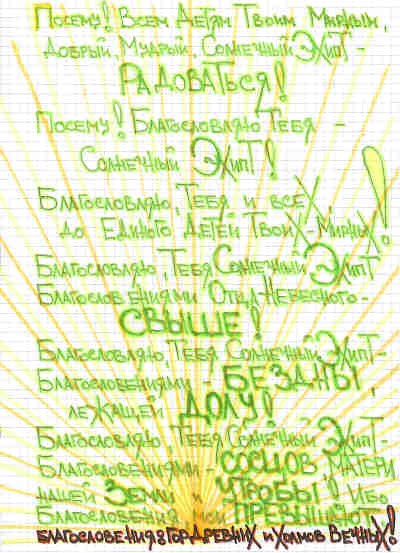 Посему! Всем Детям Твоим Мирным,
Добрый, Мудрый, Солнечный ЭХипТ -
РАДОВАТЬСЯ!
Посему! Благословляю Тебя -
Солнечный ЭХипТ!
Благословляю, Тебя и всех,
до Единого Детей Твоих - Мирных!
Благословляю, Тебя, Солнечный ЭХипТ
Благословениями Отца-Небесного -
СВЫШЕ!
Благословляю, Тебя, Солнечный ЭХипТ -
Благословениями - БЕЗДНЫ,
лежащей ДОЛУ!
Благословляю, Тебя, Солнечный ЭХипТ -
Благословениями - СОСЦОВ МАТЕРИ
нашей Земли и УТРОБЫ! Ибо
Благословения мои ПРЕВЫШАЮТ
БЛАГОСЛОВЕНИЯ ГОР ДРЕВНИХ и ХОЛМОВ ВЕЧНЫХ!